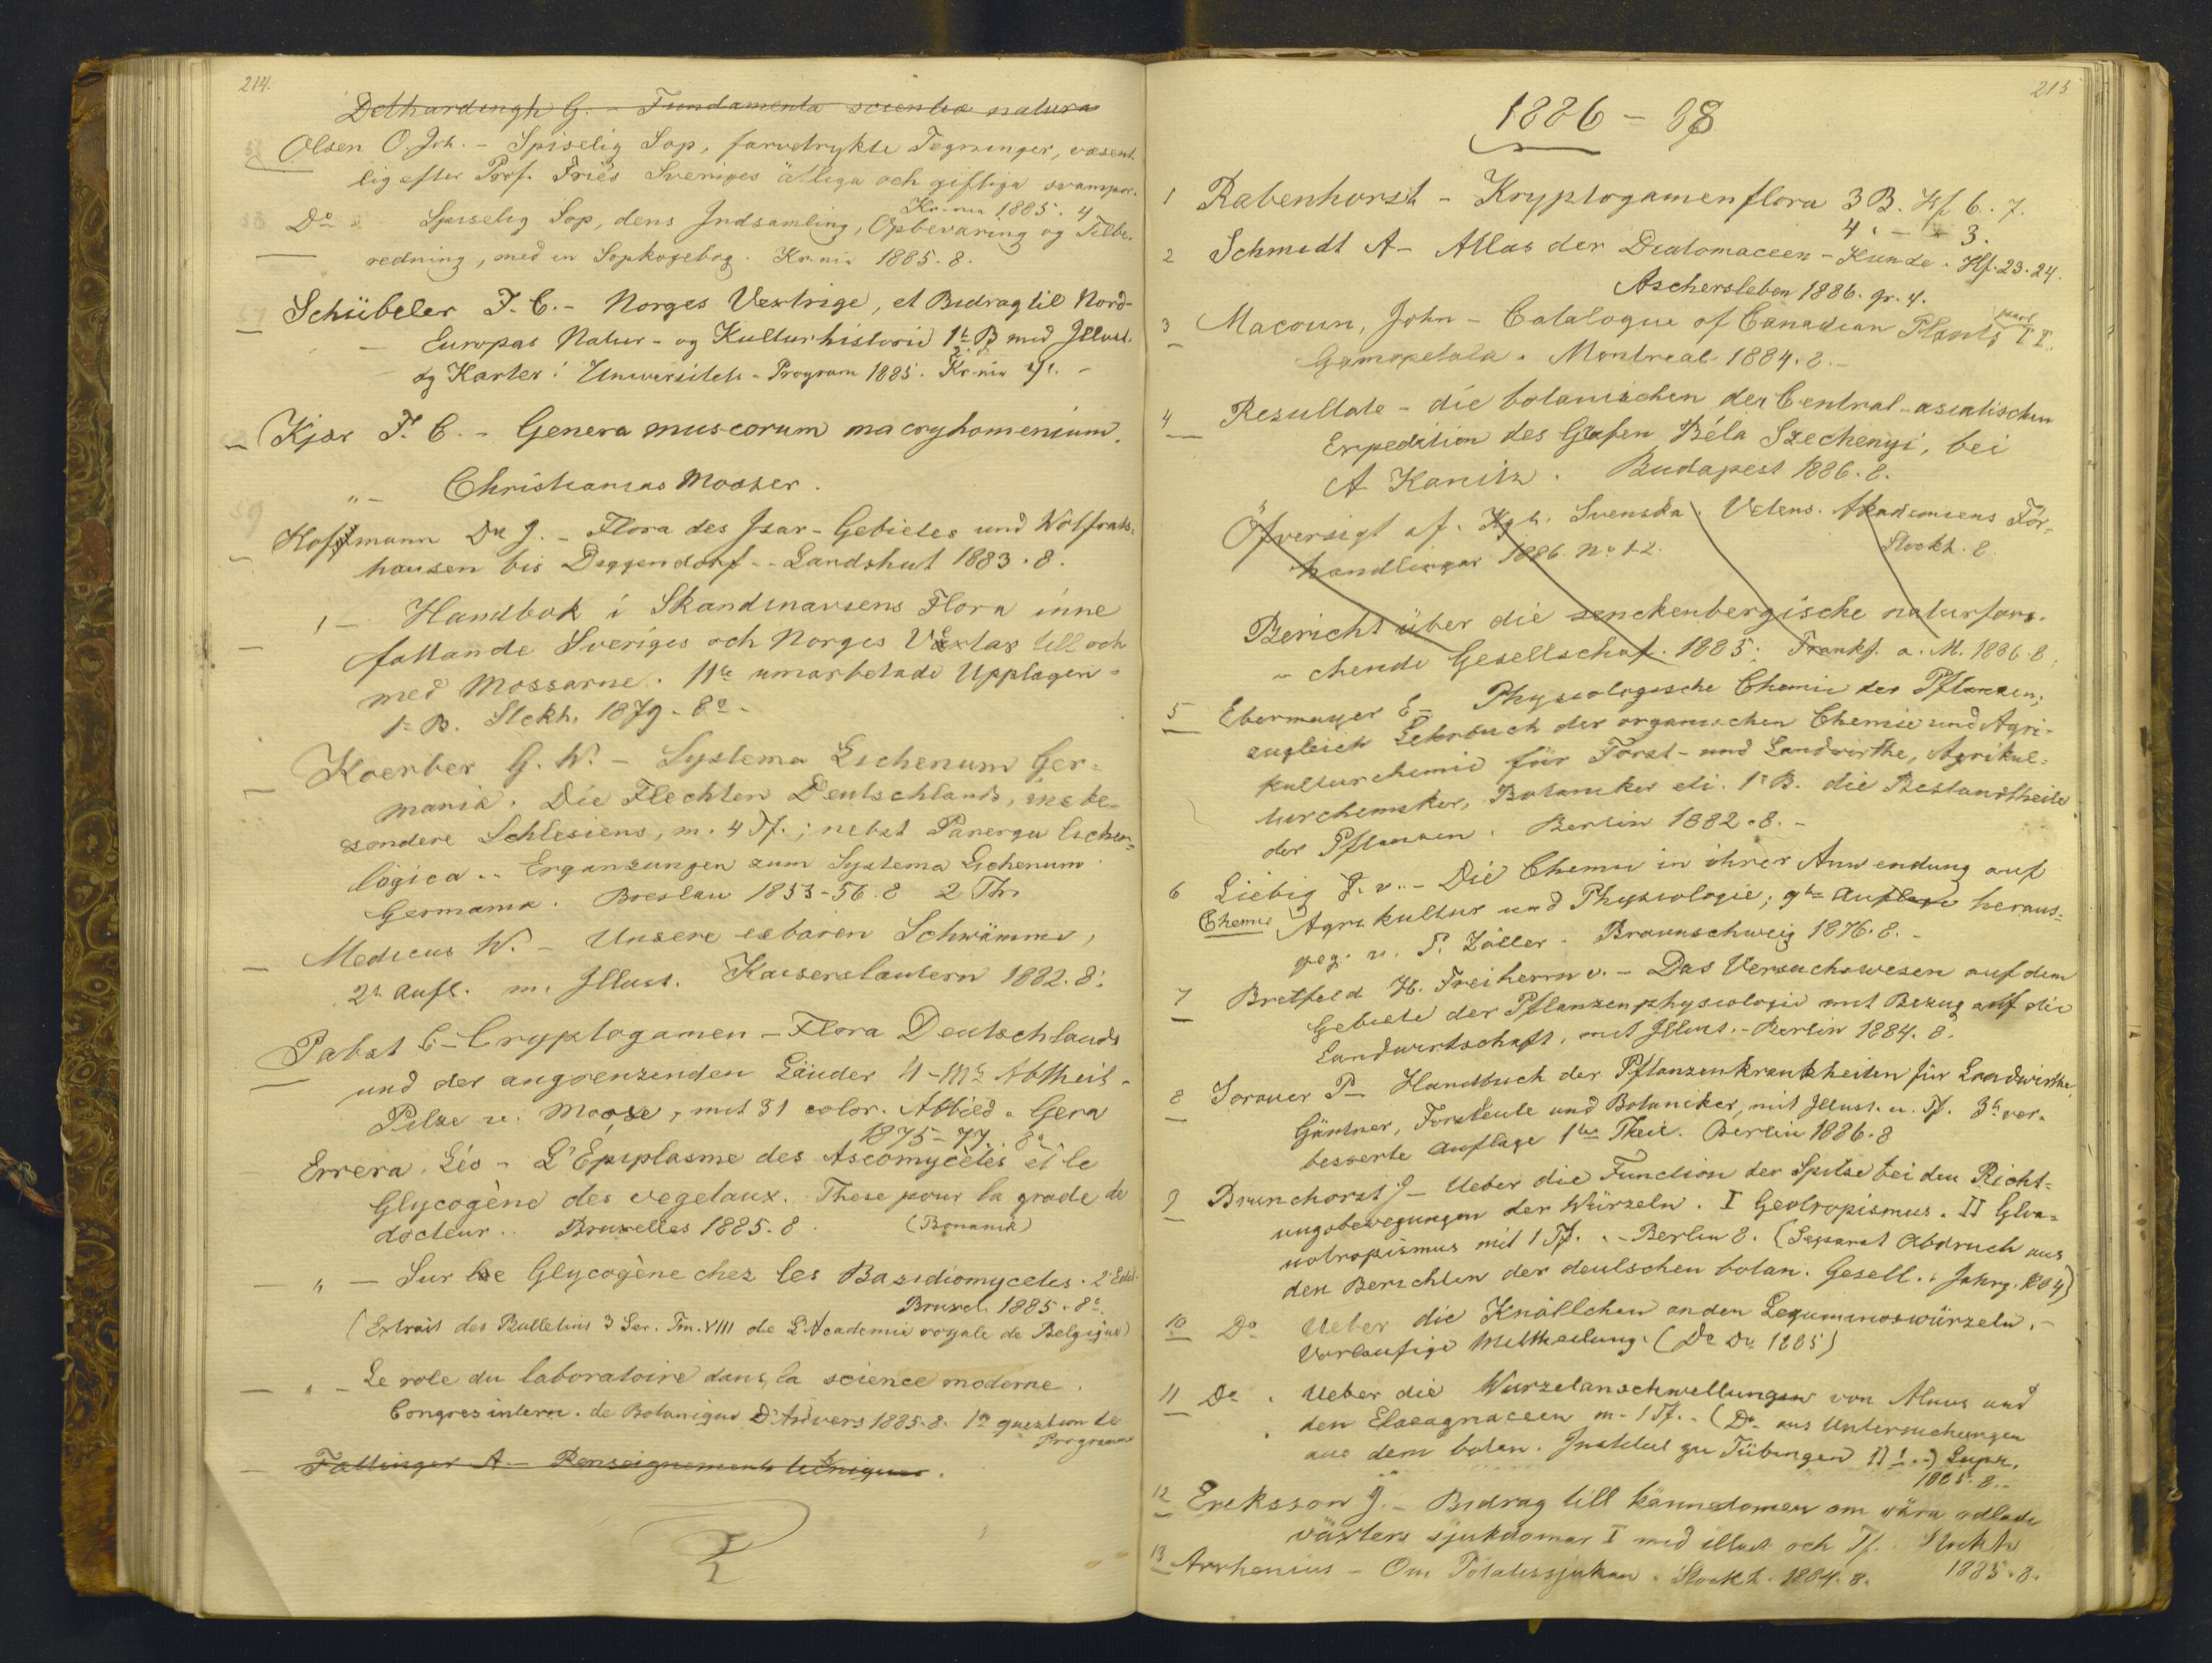 214.
Dethardingh G. - Fundamenta scientiæ naturæ
Olsen O. Joh. - Spiselig Sop, farvetrykte Tegninger, væsent-
lig efter Prof. Fries Sveriges ätliga och giftiga svampar.
Kr-nia 1885. 4
Do Spiselig Sop, dens Indsamling, Opbevaring og Tilbe-
redning, med en Sopkogebog. Kr.nia 1885. 8.
Schübeler F. C. - Norges Vextrige, et Bidrag til Nord-
Europas Natur- og Kulturhistorie 1te B med Illust.
og Karter: Universitets-Program 1885. Kr-nia
Kjær F. C. - Genera muscorum macryhomenium.
" - Christianias Mosser.
59
Hoffmann Dr J. - Flora des Isar-Gebietes und Wolfrats-
hausen bis Deggendorf - Landshut 1883. 8.
1 - Handbok i Skandinaviens Flora inne
fattande Sveriges och Norges Vexter till och
med Mossorne. 11te umarbetade Upplagen -
1e B. Stckh. 1879. 8o -
Koerber G. W. - Systema Lichenum Ger-
maniæ. Die Flechten Deutschlands, insbe-
sondere Schlesiens, m. 4 Tf.; nebst Parerga lichen-
logica .. Erganzungen zum Systema Lichenum
Germaniæ. Breslau 1853-56. 8 2 Th.
Medicus W. - Unsere esbaren Schwämme,
2te Aufl. m. Illust. Kaiserslautern 1882. 8.
Pabst C - Cryptogamen - Flora Deutschlands
und der angrenzenden Länder II-IIIte Abtheil-
Pilze u. Moose, mit 31 color. Abbild. Gera
1875-77. 8o.
Errera, Léo - L'Epiplasme des Ascomycètes et le
Glycogène des vegetaux. These pour la grade de
docteur .. Bruxelles 1885. 8. (Bonanik)
" - Sur le Glycogène chez les Basidiomycetes. 2e Edd.
Bruxel. 1885. 8o.
(Extrait des Bulletins 3 Ser. Tm. VIII de L'Academie royale de Belgique)
" - Le role du laboratoire dans la science moderne.
Congres intern. de Botanique D'Anvers 1885. 8. 1e question de
Programme
Fallinger A - Renseignements techniques.
215
1886 - 88
1 Rabenhorst - Kryptogamenflora 3 B. Hf. 6. 7.
4 " - " 3.
2 Schmidt A - Atlas der Diatomaceen - Kunde. Hf. 23. 24.
Aschersleben 1886. gr. 4.
3 Macoun, John - Catalogue of Canadian Plants part II.
Gamopetala. Montreal 1884. 8. -
4 Resultate - die botanischen der Central-asiatischen
Expedition des Grafen Béla Szechenyi, bei
A Kanitz. Budapest 1886. 8.
Öfversigt af Kgh. Svenska Vetens. Akademiens För-
handlingar 1886. No 1-2. Stockh. 8.
Bericht über die senckenbergische naturfors-
chende Gesellschaft. 1885. Frankf. a. M. 1886. 8.
5 Ebermayer E - Physiologische Chemie der Pflanzen;
zugleich Lehrbuch der organischen Chemie und Agri-
kulturchemie für Forst- und Landwirthe, Agrikul-
turchemiker, Botaniker etc. 1e B. die Bestandtheile
der Pflanzen. Berlin 1882. 8. -
6 Liebig J. v. - Die Chemie in ihrer Anwendung auf
Chemie Agrikultur und Physiologie; 9te Auflage heraus-
geg. v. P. Zöller. Braunschweig 1876. 8. -
7 Bretfeld H. Freiherrn v. - Das Versuchswesen auf dem
Gebiete der Pflanzenphysiologie mit Bezug auf die
Landwirtschaft, mit Illust. - Berlin 1884. 8.
8 Sorauer P - Handbuch der Pflanzenkrankheiten für Landwirthe,
Gäntner, Forstleute und Botaniker, mit Illust. u. Tf. 3te ver-
besserte Auflage 1ter Theil. Berlin 1886. 8
9 Brunchorst J - Ueber die Function der Spitse bei den Richt-
ungsbewegungen der Würzeln. I Geotropismus. II Glva-
notropismus mit 1 Tf. - Berlin 8. (Separat Abdruck aus
den Berichten der deutschen botan. Gesell. Jahrg. 1884)
10 Do Ueber die Knöllchen an den Leguminoswürzeln. -
Vorlaufige Mittheilung. (Do Do 1885)
11 Do . Ueber die Wurzelanschwellungen von Alnus und
den Elaeagnaceen m. 1 Tf. - (Do aus Untersuchungen
aus dem botan. Institut zu Tübingen II 1 -) Lepz.
1885. 8. -
12 Ereksson J. - Bidrag till kännedomen om våra odlade
växters sjukdomar I med illust och Tf. Stockh
1885. 8.
13 Arrhenius - Om Potatissjukan. Stockh. 1884. 8.